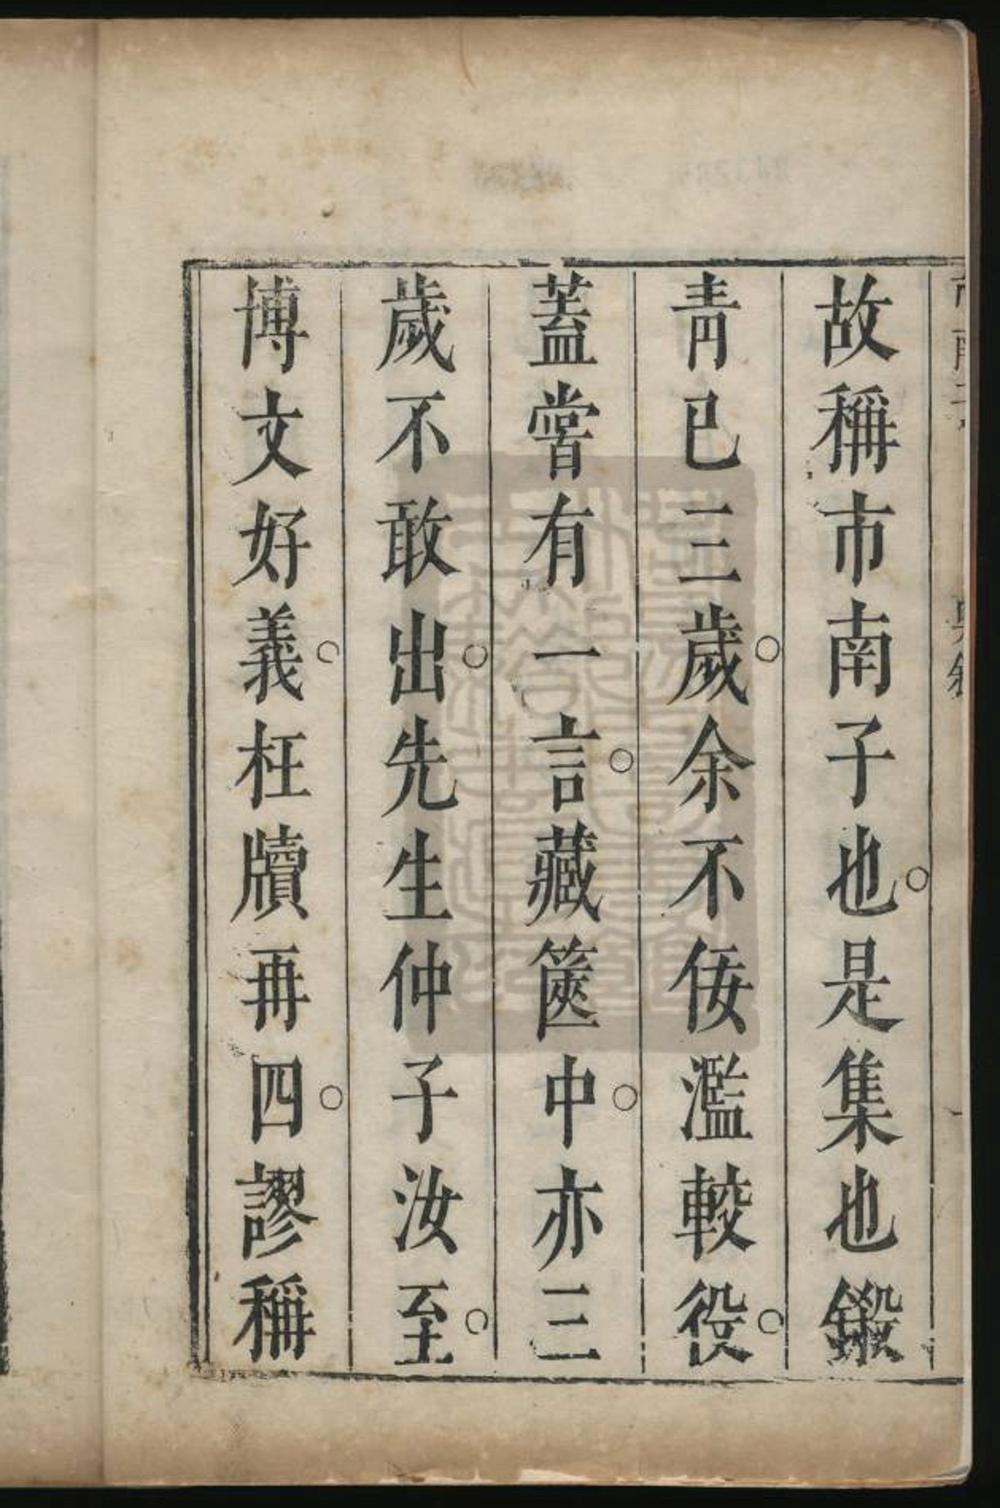 故稱市南子也。是集也鍛
青已三歲。余不佞濫較役。
蓋嘗有一言。藏篋中。亦三
歲不敢出。先生仲子汝至。
博文好義。枉牘再四。謬稱